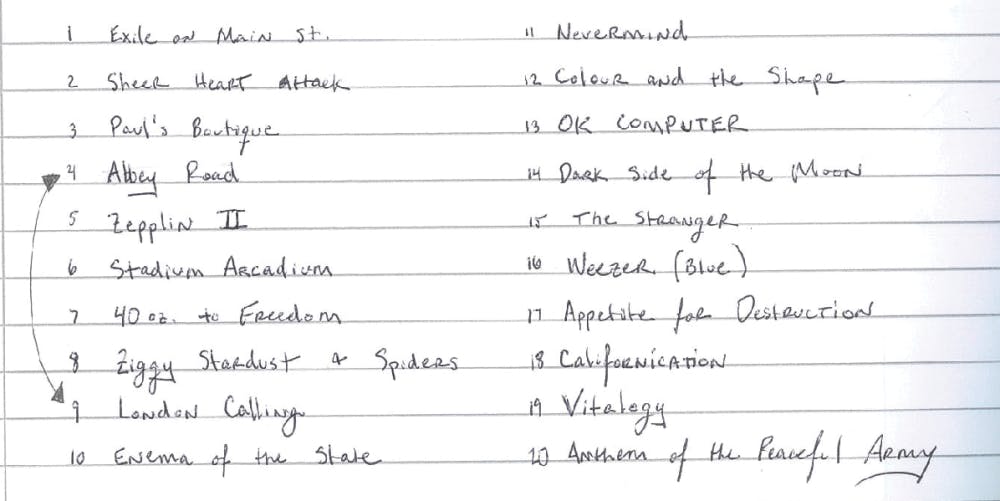 1 Exile on Main St.
2 Sheer Heart Attack
3 Paul's Boutique
4 Abbey Road
5 Zepplin II
6 Stadium Arcadium
7 40 oz. to Freedom
8 Ziggy Stardust & Spiders
9 London Calling
10 Enema of the State
11 Nevermind
12 Colour and the Shape
13 OK COMPUTER
14 Dark Side of the Moon
15 The Stranger
16 Weezer (Blue)
17 Appetite for Destruction
18 Californication
19 Vitalogy
20 Anthem of the Peaceful Army